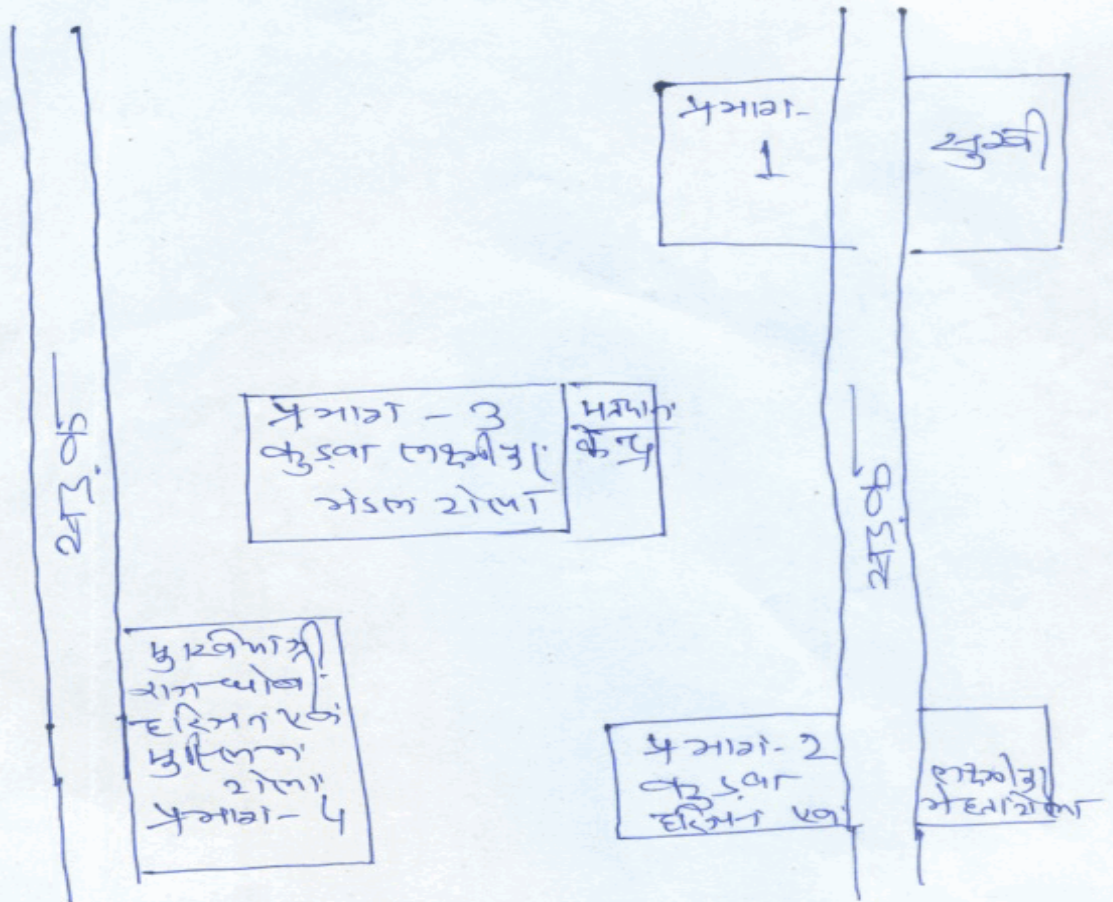 प्रभाग-
1
सुखी
सड़क
प्रभाग - 3
कुड़वा लक्ष्मीपुर
मंडल टोला
मतदान
केन्द्र
सड़क
हरिजन एवं
मुस्लिम
टोला
प्रभाग - 4
प्रभाग - 2
कुड़वा
हरिजन एवं
लक्ष्मीपुर
मेहता टोला